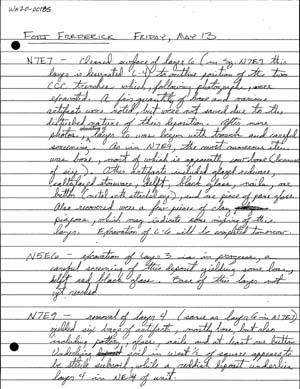 WA20-00185
FORT FREDERICK FRIDAY, MAY 13
N7E7 - Cleaned surface of layer 6 (in Sq. N7E9 this
layer is designated L-4) to outline position of the two
CCC trenches which, following photographs, were
excavated. A fair quantity of bone and various
artifacts were noted but were not saved due to the
disturbed nature of this deposition. After more
photos, layer 6 was begun with trowels and careful
screening. As in N7E9, the most numerous item
was bone, most of which is apparently cow bone (because
of size). Other artifacts included glazed redware,
saltglazed stoneware, delft, black glass, nails, one
button (metal with attached eye), and one piece of glass.
Also recovered were a few pieces of
, which may indicate some mixing of this
layer. Excavation of L-6 will be completed tomorrow.
N5E60 - excavation of layer 3 is in progress, a
careful screening of this deposit yielding some bone,
delft and black glass. Base of this layer not
yet reached.
N7E9 - removal of layer 4 (same as layer 6 in N7E7)
yielded six bags of artifacts, mostly bone, but also
including pottery, glass, nails and at least one button.
Underlying soil in west ½ of square appears to
be sterile subsoil, while a reddish deposit underlies
layer 4 in NE ¼ of unit.